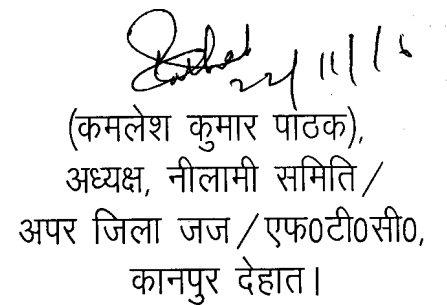 22/11/16
(कमलेश कुमार पाठक),
अध्यक्ष, नीलामी समिति/
अपर जिला जज/एफ0टी0सी0,
कानपुर देहात।